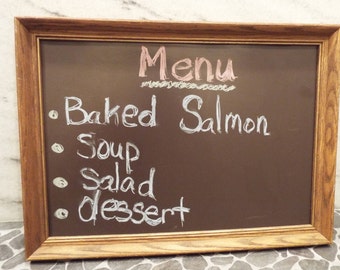 Menu
• Baked Salmon
• Soup
• Salad
• dessert